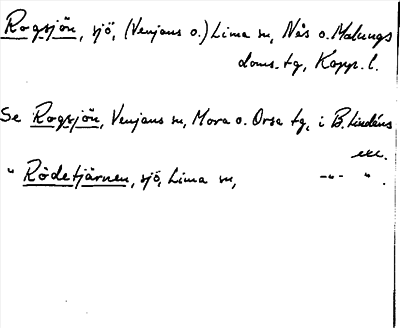 Rogsjön, sjö, (Venjans o.) Lima sn, Nås o. Malungs
doms. tg, Kopp. l.
Se Rogsjön, Venjans sn, Mora o. Orsa tg, i B. Lindéns
exc.
" Rödetjärnen, sjö, Lima sn, -"- " .